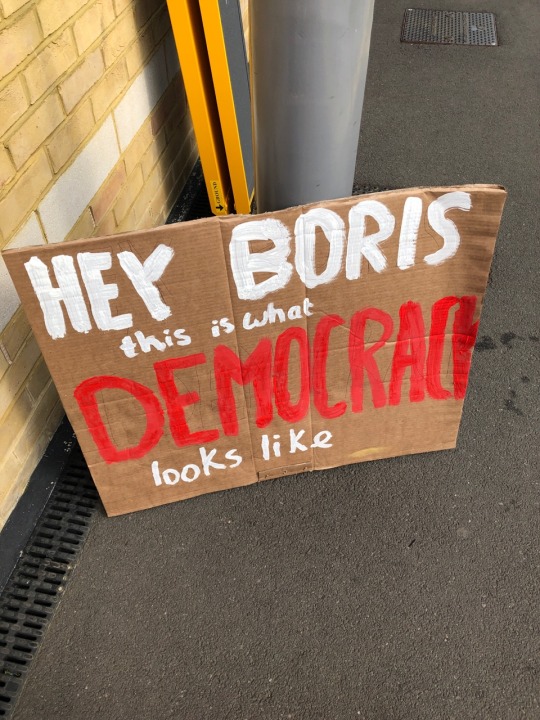 GROUND
HEY BORIS
this is what
DEMOCRACY
looks like